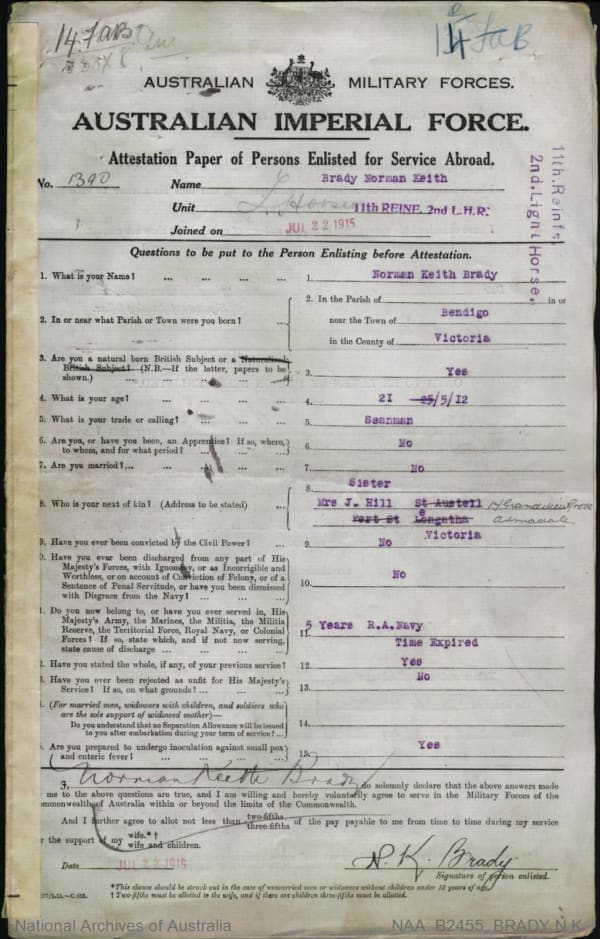 14 FAB
14 FAB
AUSTRALIAN MILITARY FORCES.
AUSTRALIAN IMPERIAL FORCE.
Attestation Paper of Persons Enlisted for Service Abroad.
No. 1390 Name Brady Norman Keith
Unit L Horse 11th REINF. 2nd L.H.R.
Joined on JUL 22 1915
11th.Reinfs,
2nd.Light Horse.
Questions to be put to the Person Enlisting before Attestation.
1. What is your Name? ... ... ... 1. Norman Keith Brady
2. In or near what Parish or Town were you born? ... 2. In the Parish of in or
near the Town of Bendigo
in the County of Victoria
3. Are you a natural born British Subject or a Naturalised
British Subject? (N.B.—If the latter, papers to be
shown.) ... ... ... ... 3. Yes
4. What is your age? ... ... ... 4. 21 25/5/12
5. What is your trade or calling? ... ... 5. Seanman
6. Are you, or have you been, an Apprentice? If so, where,
to whom, and for what period? ... ... 6. No
7. Are you married? ... ... ... 7. No
8. Who is your next of kin? (Address to be stated) ... 8. Sister
Mrs J. Hill St Austell 14 Grandview Grove
Port St Leongatha Armadale
Victoria
9. Have you ever been convicted by the Civil Power? ... 9. No
0. Have you ever been discharged from any part of His
Majesty's Forces, with Ignominy, or as Incorrigible and
Worthless, or on account of Conviction of Felony, or of a
Sentence of Penal Servitude, or have you been dismissed
with Disgrace from the Navy? ... ... ... 10. No
1. Do you now belong to, or have you ever served in, His
Majesty's Army, the Marines, the Militia, the Militia
Reserve, the Territorial Force, Royal Navy, or Colonial
Forces? If so, state which, and if not now serving,
state cause of discharge ... ... ... 11. 5 Years R.A.Navy
Time Expired
2. Have you stated the whole, if any, of your previous service? 12. Yes
3. Have you ever been rejected as unfit for His Majesty's
Service? If so, on what grounds? ... ... ... 13. No
4. (For married men, widowers with children, and soldiers who
are the sole support of widowed mother)—
Do you understand that no Separation Allowance will be issued
to you after embarkation during your term of service? ... 14.
5. Are you prepared to undergo inoculation against small pox
and enteric fever? ... ... ... 15. Yes
I, Norman Keith Brady do solemnly declare that the above answers made
me to the above questions are true, and I am willing and hereby voluntarily agree to serve in the Military Forces of the
mmonwealth of Australia within or beyond the limits of the Commonwealth.
And I further agree to allot not less than two-fifths three-fifths of the pay payable to me from time to time during my service
r the support of my wife.*† wife and children.
Date JUL 22 1915 N. K. Brady
Signature of person enlisted.
*This clause should be struck out in the case of unmarried men or widowers without children under 18 years of age.
† Two-fifths must be allotted to the wife, and if there are children three-fifths must be allotted.
National Archives of Australia NAA: B2455, BRADY N K